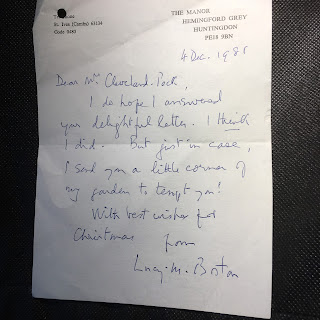 Telephone
St. Ives (Cambs) 63134
Code 0480
THE MANOR
HEMINGFORD GREY
HUNTINGDON
PE18 9BN
4 Dec. 1985
Dear Mrs Cleveland-Peck,
I do hope I answered
your delightful letter. I think
I did. But just in case,
I send you a little corner of
my garden to tempt you!
With best wishes for
Christmas from
Lucy. M. Boston